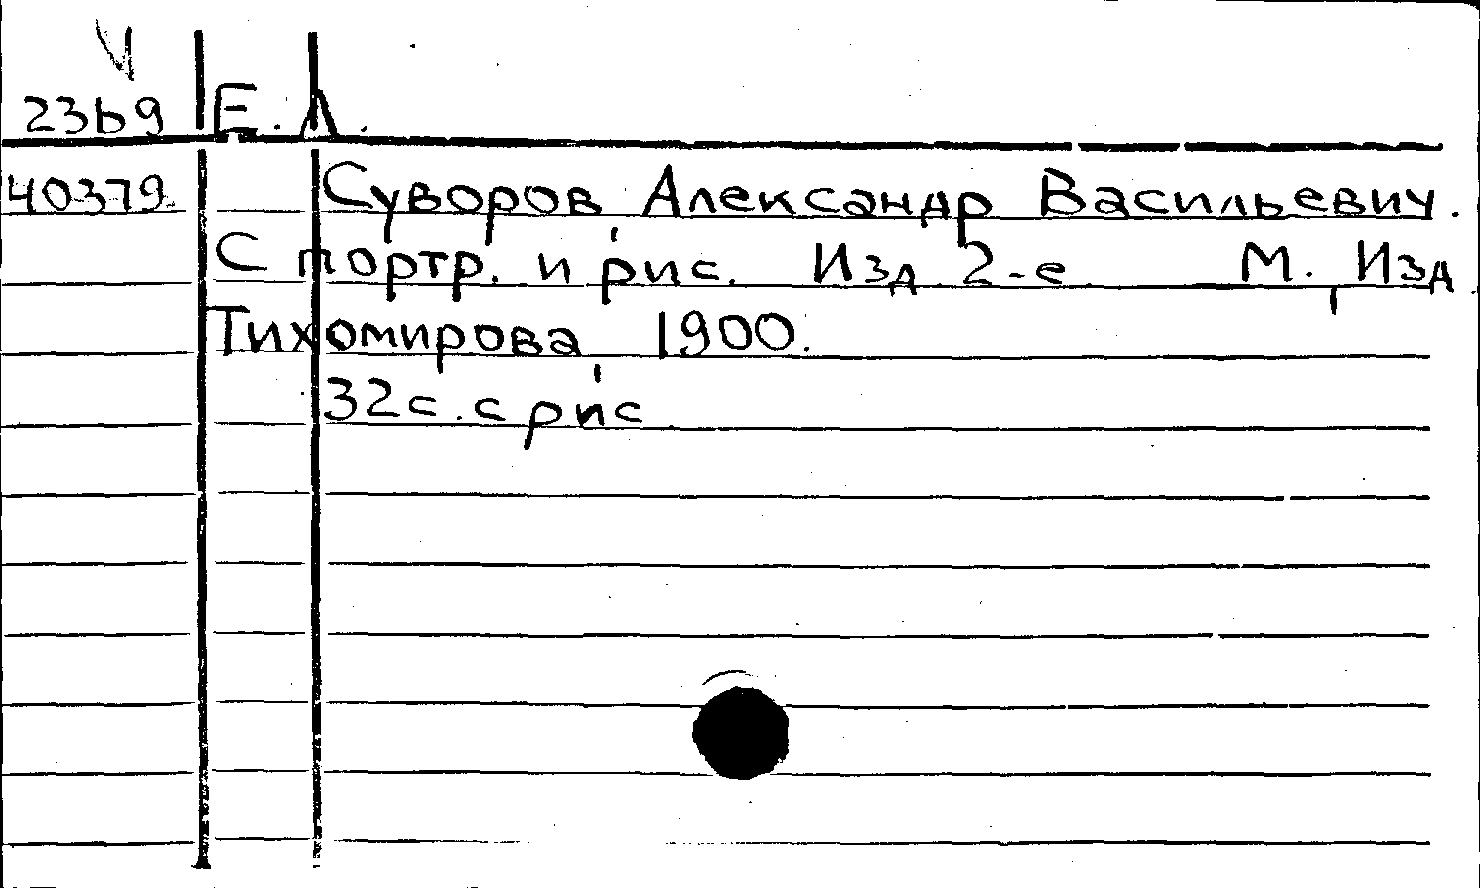 V
23b9 Е. Л.
40379 Суворов, Александр Васильевич.
С портр. и рис. Изд. 2-е М., Изд.
Тихомирова, 1900.
32с. с рис